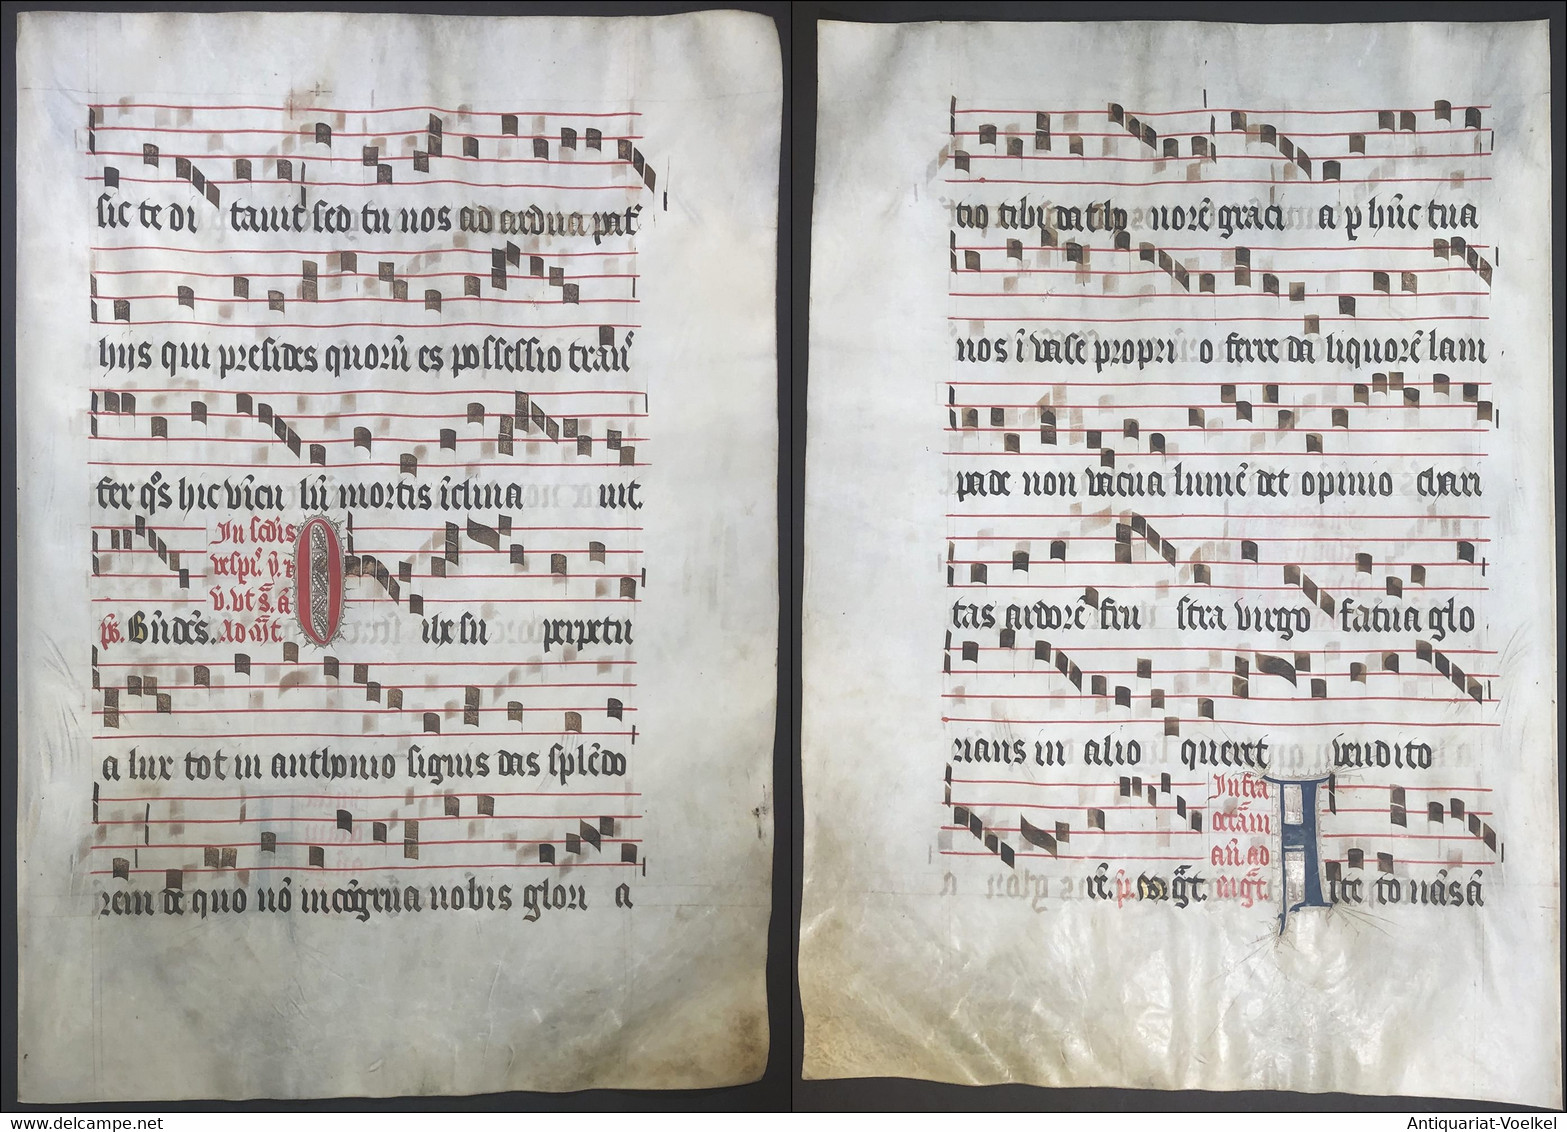 sic te di tauit sed tu nos ad ardua pat᷑
hijs qui presides quorū es possessio trāsi
fer q̊s hic vīcu lū mortis īclina uit.
In scd̄is
vesp̄i. ꝟ. ⁊
v. vt s̄. ā
p̄s. Bn̄dc̄s. Ad m̄gt. O ihesu perpetu
a lux tot in anthonio signis das splēdo
rem de quo nō incōgrua nobis glori a
tio tibi dat ho norē graci a p hūc tua
nos ī vase propri o ferre da liquorē lam
pade non vacua lumē det opinio chari
tas ardorē fru stra virgo fatua glo
rians in alio queret vendito
Infra
octām
an̄ ad
rē. p̄s. m̄gt. m̄gt. Alte to nās ā
Antiquariat-Voelkel